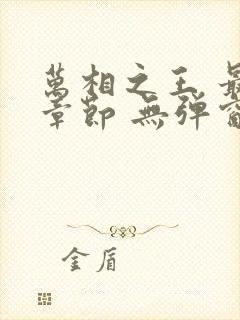 萬相之王 最
章節 無彈窗
金盾